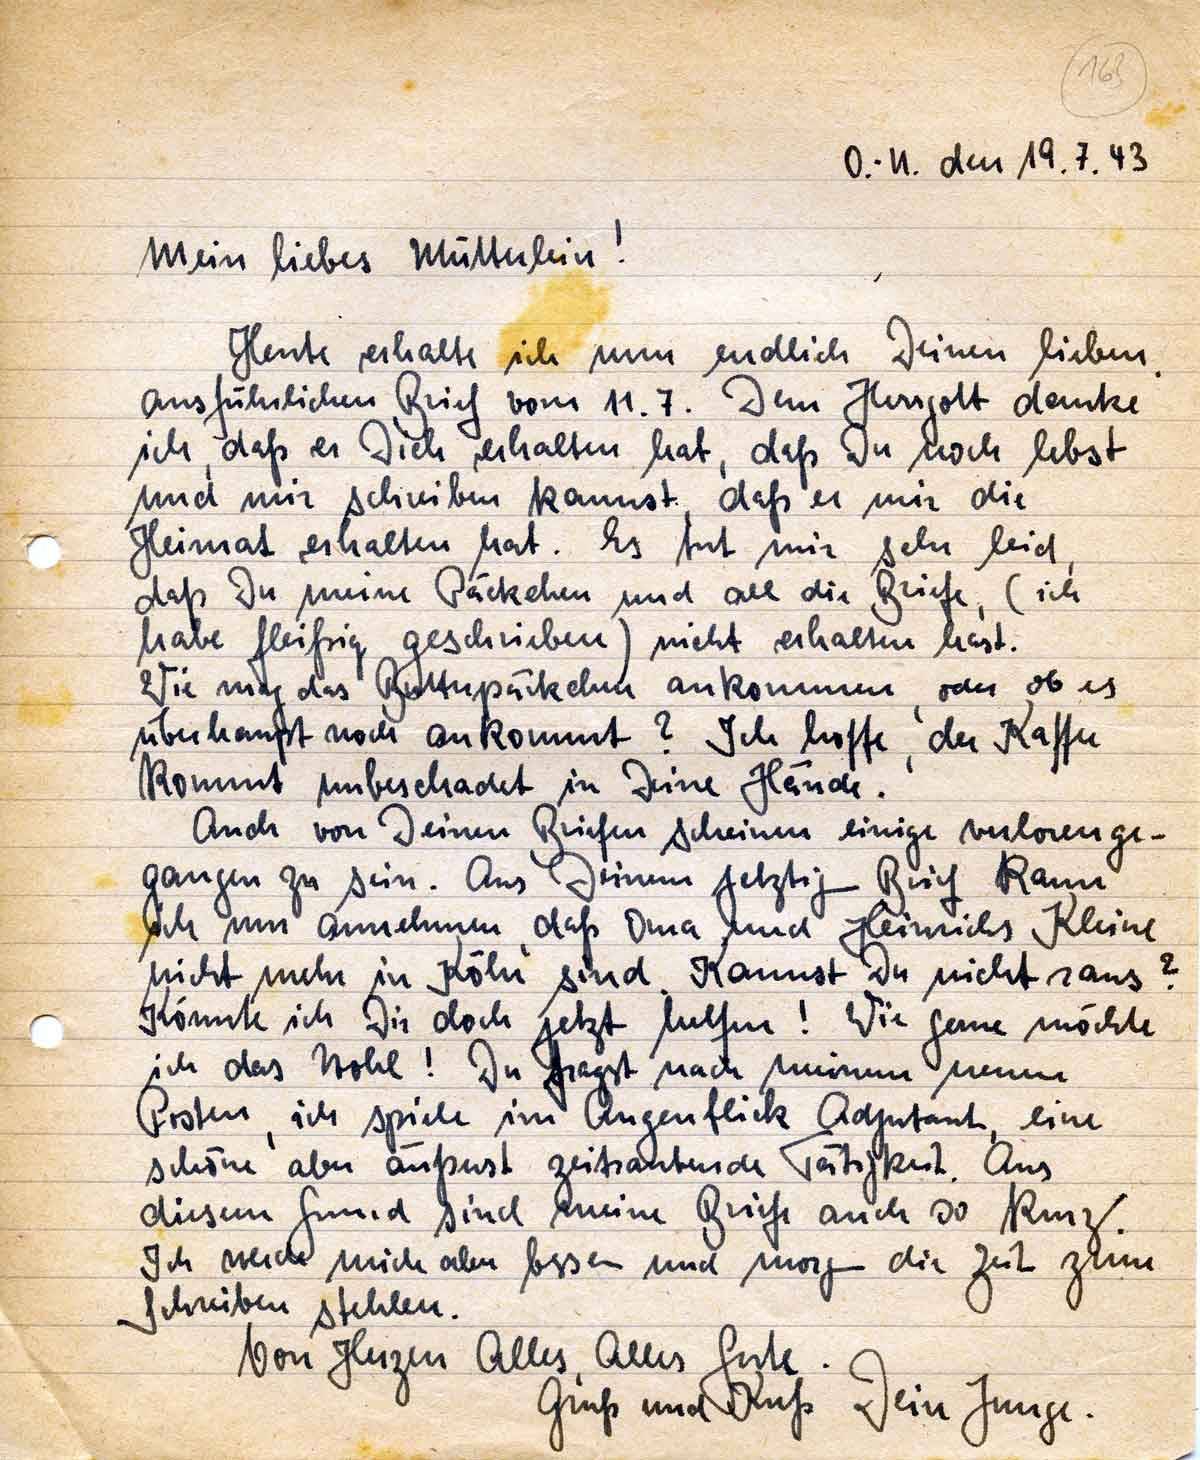 163
O.-U. den 19.7.43
Mein liebes Mütterlein!
Heute erhalte ich nun endlich Deinen lieben
ausführlichen Brief vom 11.7. Dem Herrgott danke
ich, daß er Dich erhalten hat, daß Du noch lebst
und mir schreiben kannst, daß er mir die
Heimat erhalten hat. Es tut mir sehr leid,
daß Du meine Päckchen und all die Briefe, (ich
habe fleißig geschrieben) nicht erhalten hast.
Wie mag das Butterpäckchen ankommen, oder ob es
überhaupt noch ankommt? Ich hoffe, der Kaffee
kommt unbeschadet in Deine Hände.
Auch von Deinen Briefen scheinen einige verlorenge-
gangen zu sein. Aus Deinem jetzig Brief kann
ich nun annehmen, daß Oma und Heinrichs Kleine
nicht mehr in Köln sind. Kannst Du nicht raus?
Könnte ich Dir doch jetzt helfen! Wie gerne möchte
ich das Wohl! Du fragst nach meinem neuen
Posten, ich spiele im Augenblick Adjutant, eine
schöne aber äußerst zeitraubende Tätigkeit. Aus
diesem Grund sind meine Briefe auch so kurz.
Ich werde mich aber bessern und morgen die Zeit zum
Schreiben stehlen.
Von Herzen Alles, Alles Gute.
Gruß und Kuß Dein Junge.